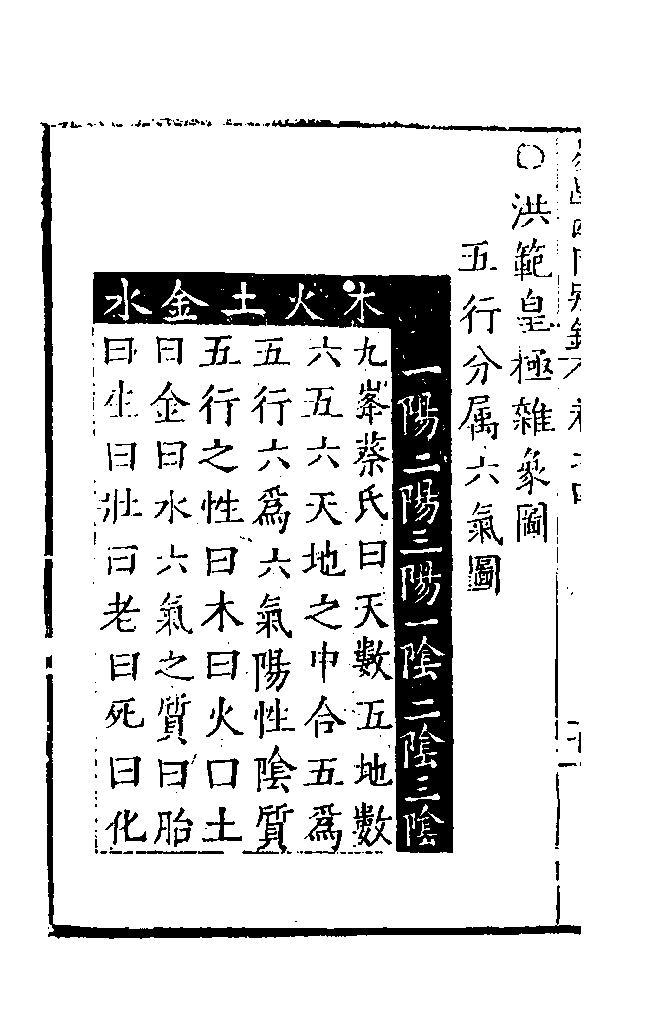 ○洪範皇極雜象圖
五行分属六氣圖
一陽二陽三陽一陰二陰三陰
木火土金水
九峯蔡氏曰天數五地數
六五六天地之中合五爲
五行六爲六氣陽性陰質
五行之性曰木曰火曰土
曰金曰水六氣之質曰胎
曰生曰壯曰老曰死曰化